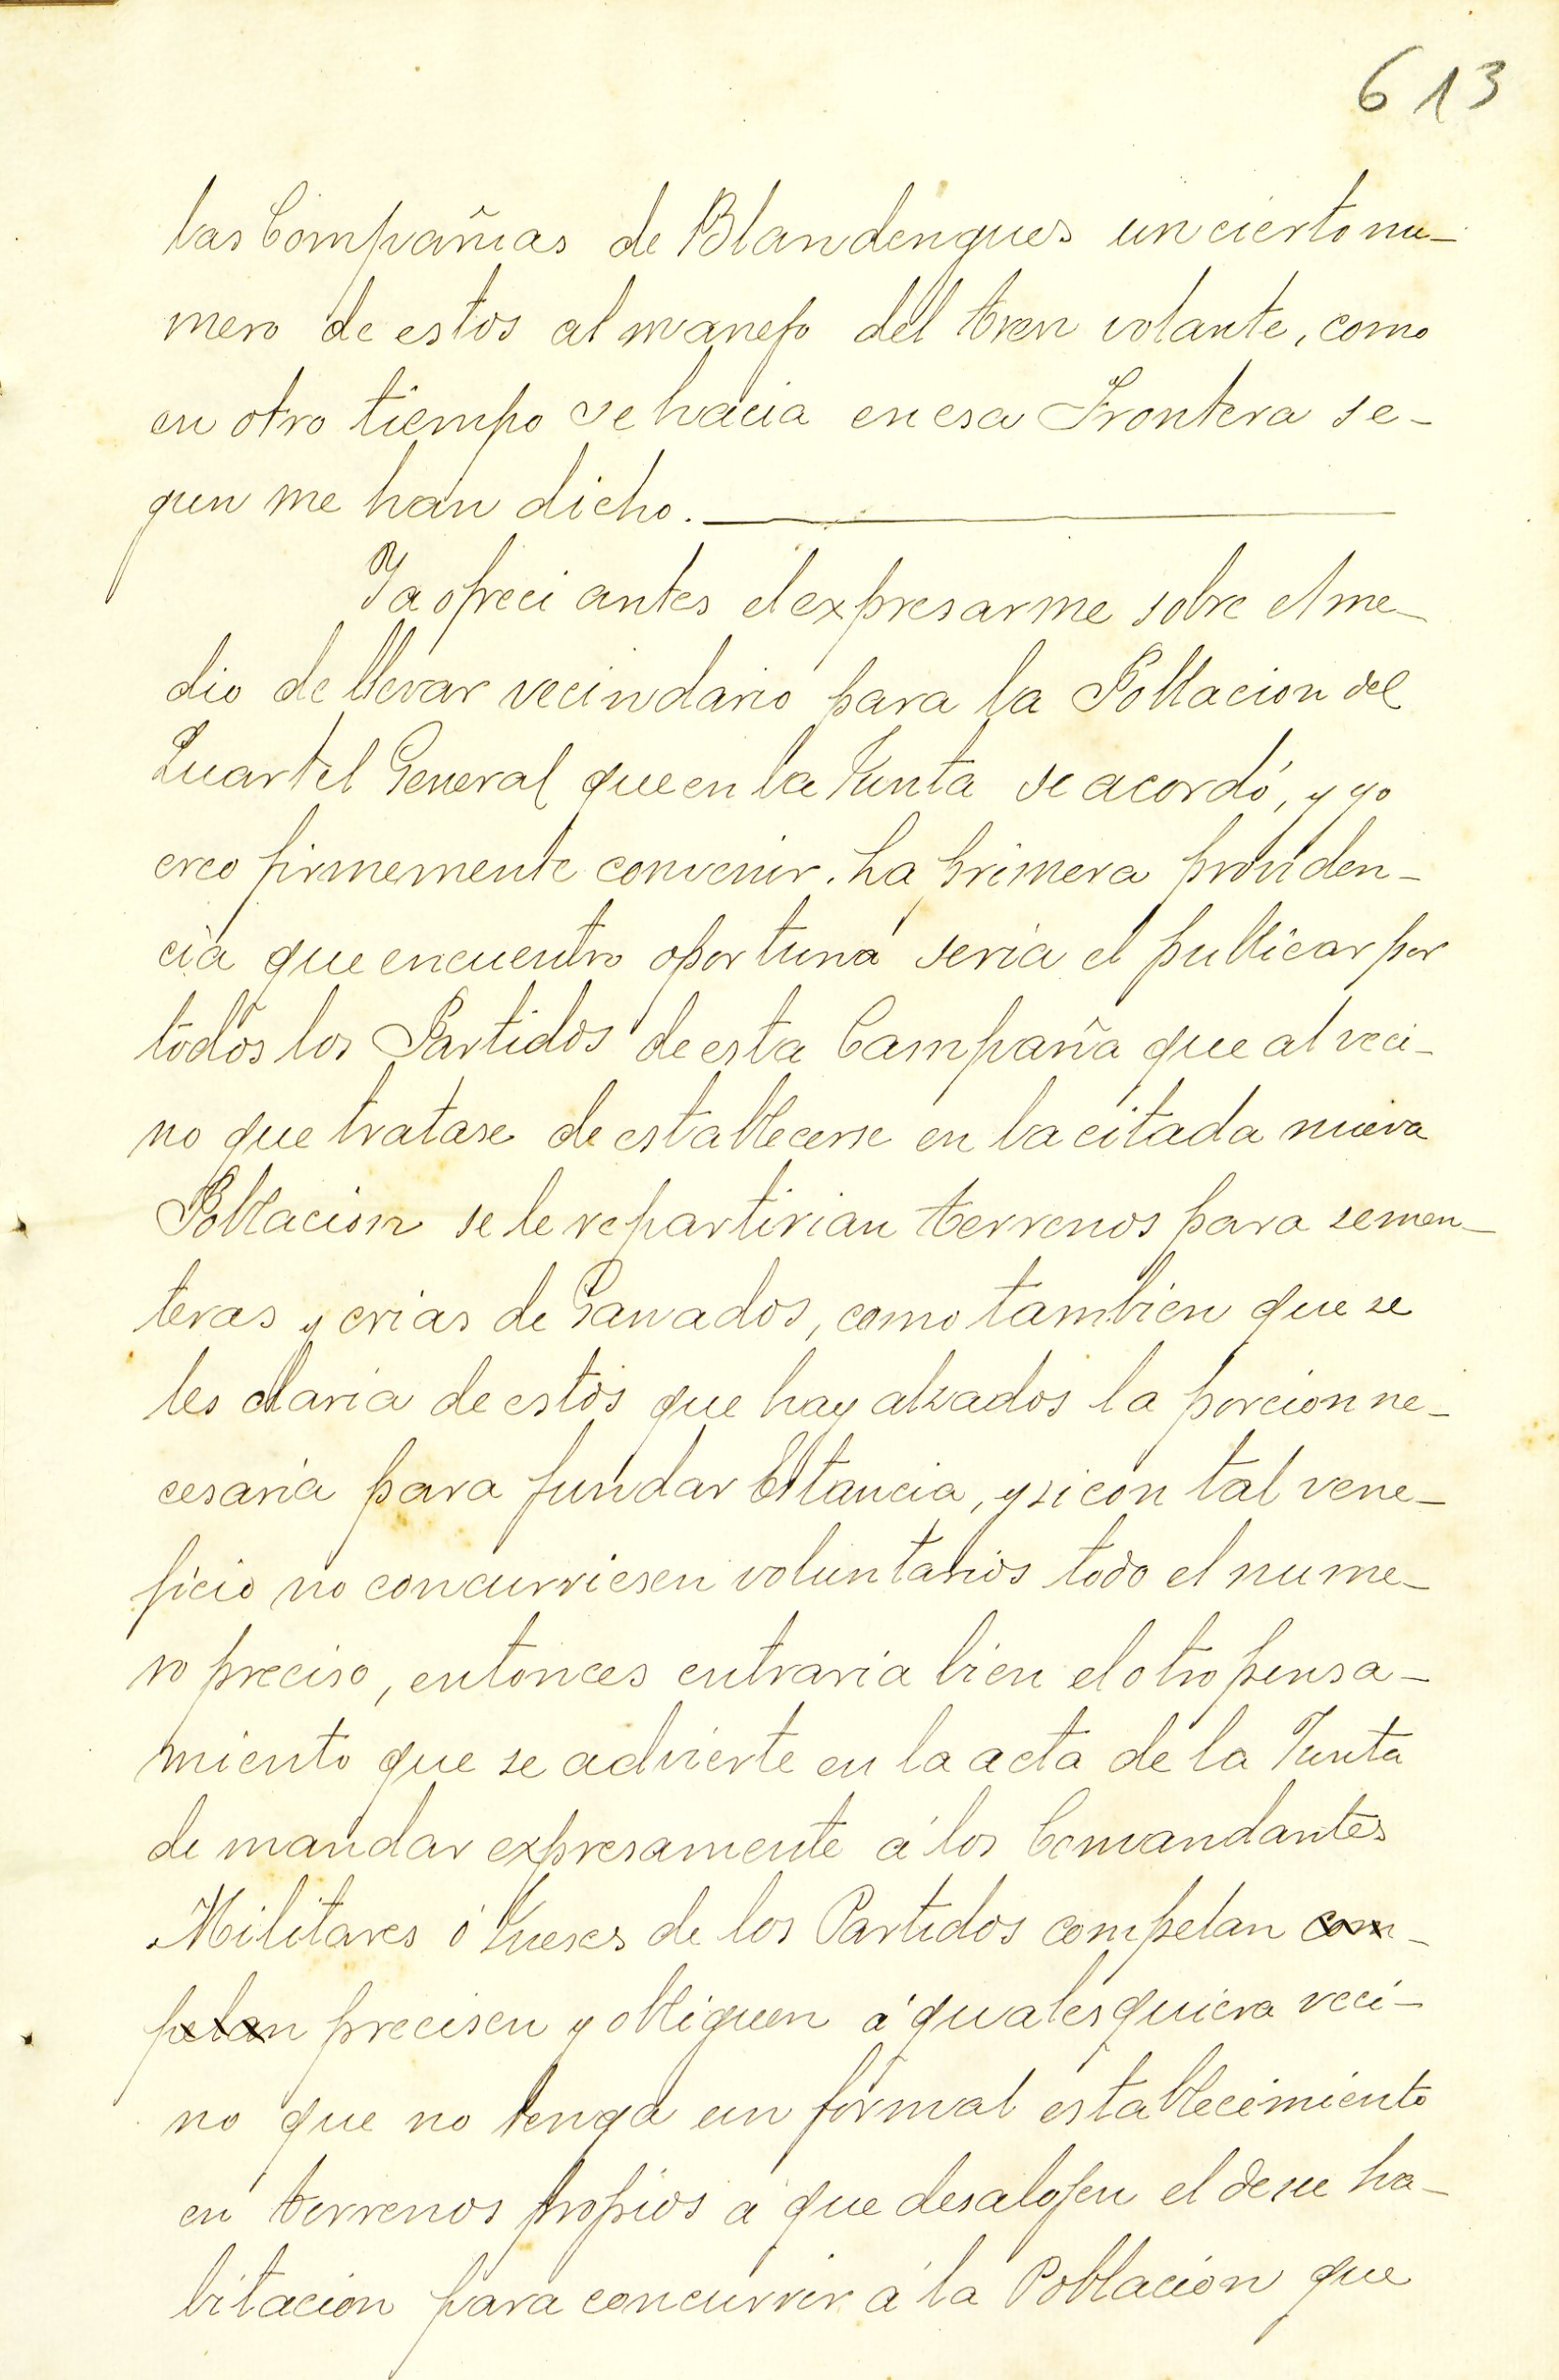 613
las Compañias de Blandengues un cierto nu-
mero de estos al manejo del tren volante, como
en otro tiempo se hacia en esa Frontera se-
gun me han dicho.
Ya ofreci antes el expresarme sobre el me-
dio de llevar vecindario para la Poblacion del
Quartel General que en la Junta se acordó, y yo
creo firmemente convenir. La primera providen-
cia que encuentro oportuna seria el publicar por
todos los Partidos de esta Campaña que al veci-
no que tratase de establecerse en la citada nueva
Poblacion se le repartirian terrenos para semen-
teras y crias de Ganados, como tambien que se
les daria de estos que hay alzados la porcion ne-
cesaria para fundar Estancia, y si con tal vene-
ficio no concurriesen voluntarios todo el nume-
ro preciso, entonces entraria bien el otro pensa-
miento que se advierte en la acta de la Junta
de mandar expresamente á los Comandantes
Militares ó Jueses de los Partidos compelan com-
pelan precisen y obliguen á qualesquiera veci-
no que no tenga un formal establecimiento
en terrenos propios a que desalojen el de su ha-
bitacion para concurrir á la Poblacion que